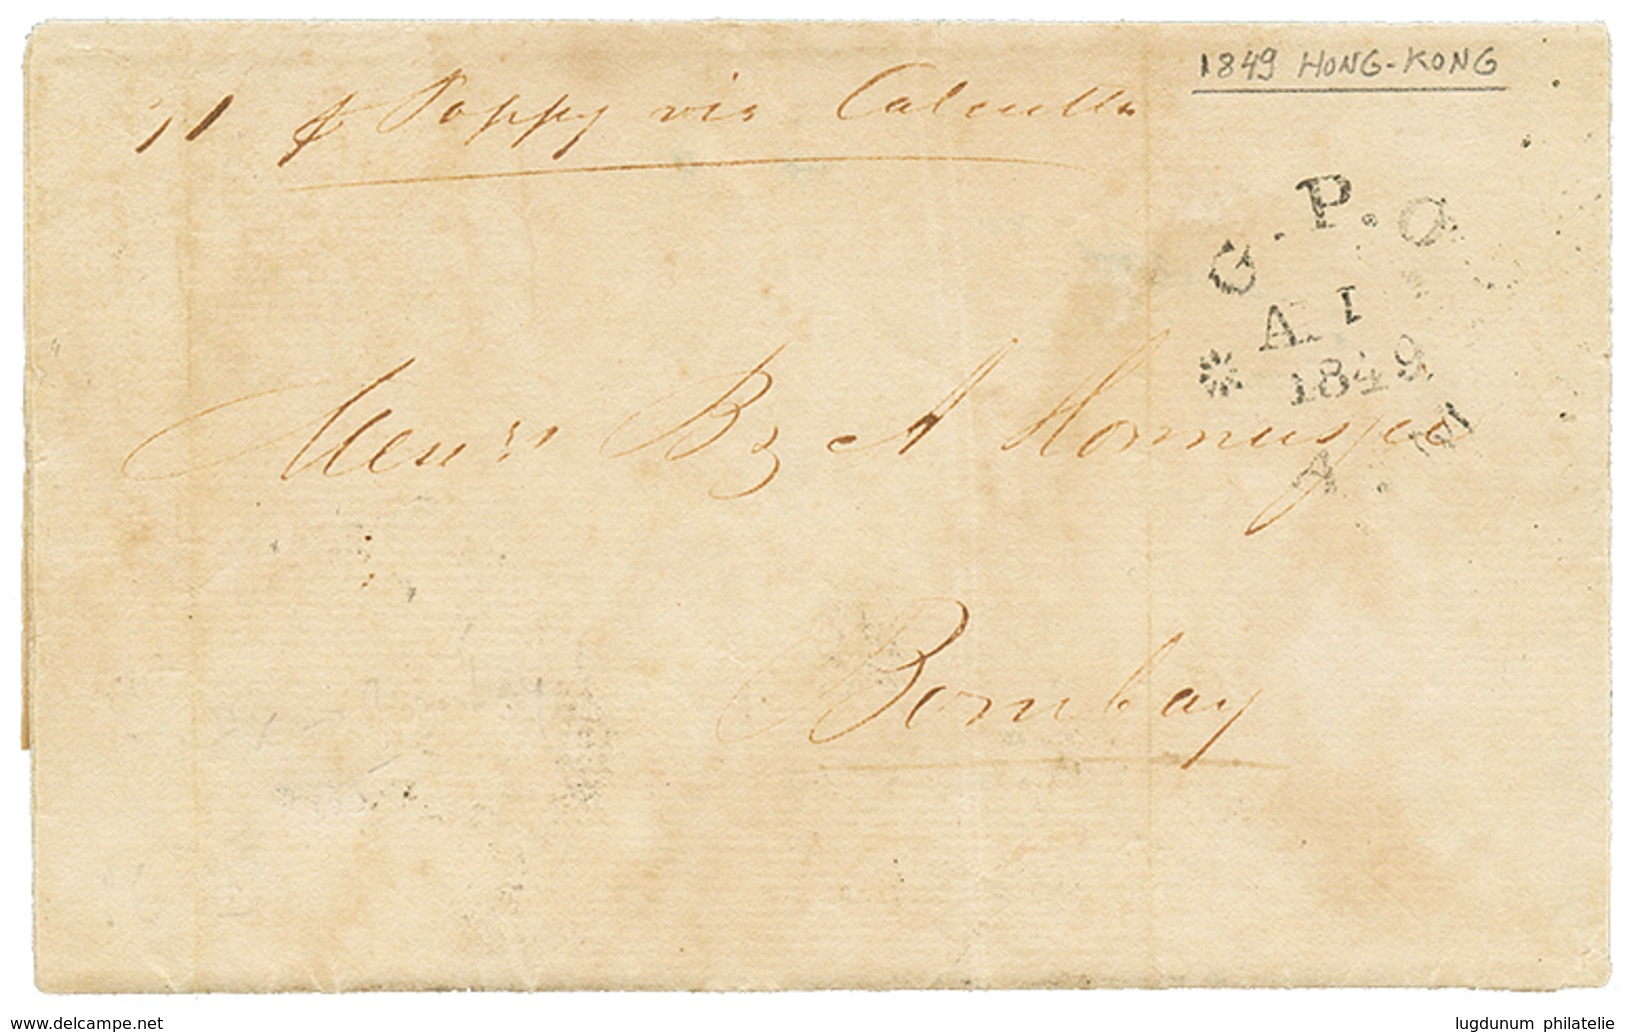 1849 HONG-KONG
p Poppy via Calcutta
G.P.O
A. 1
1849
A.M
Messrs B & A Hormusjee
Bombay
www.delcampe.net
lugdunum philatelie